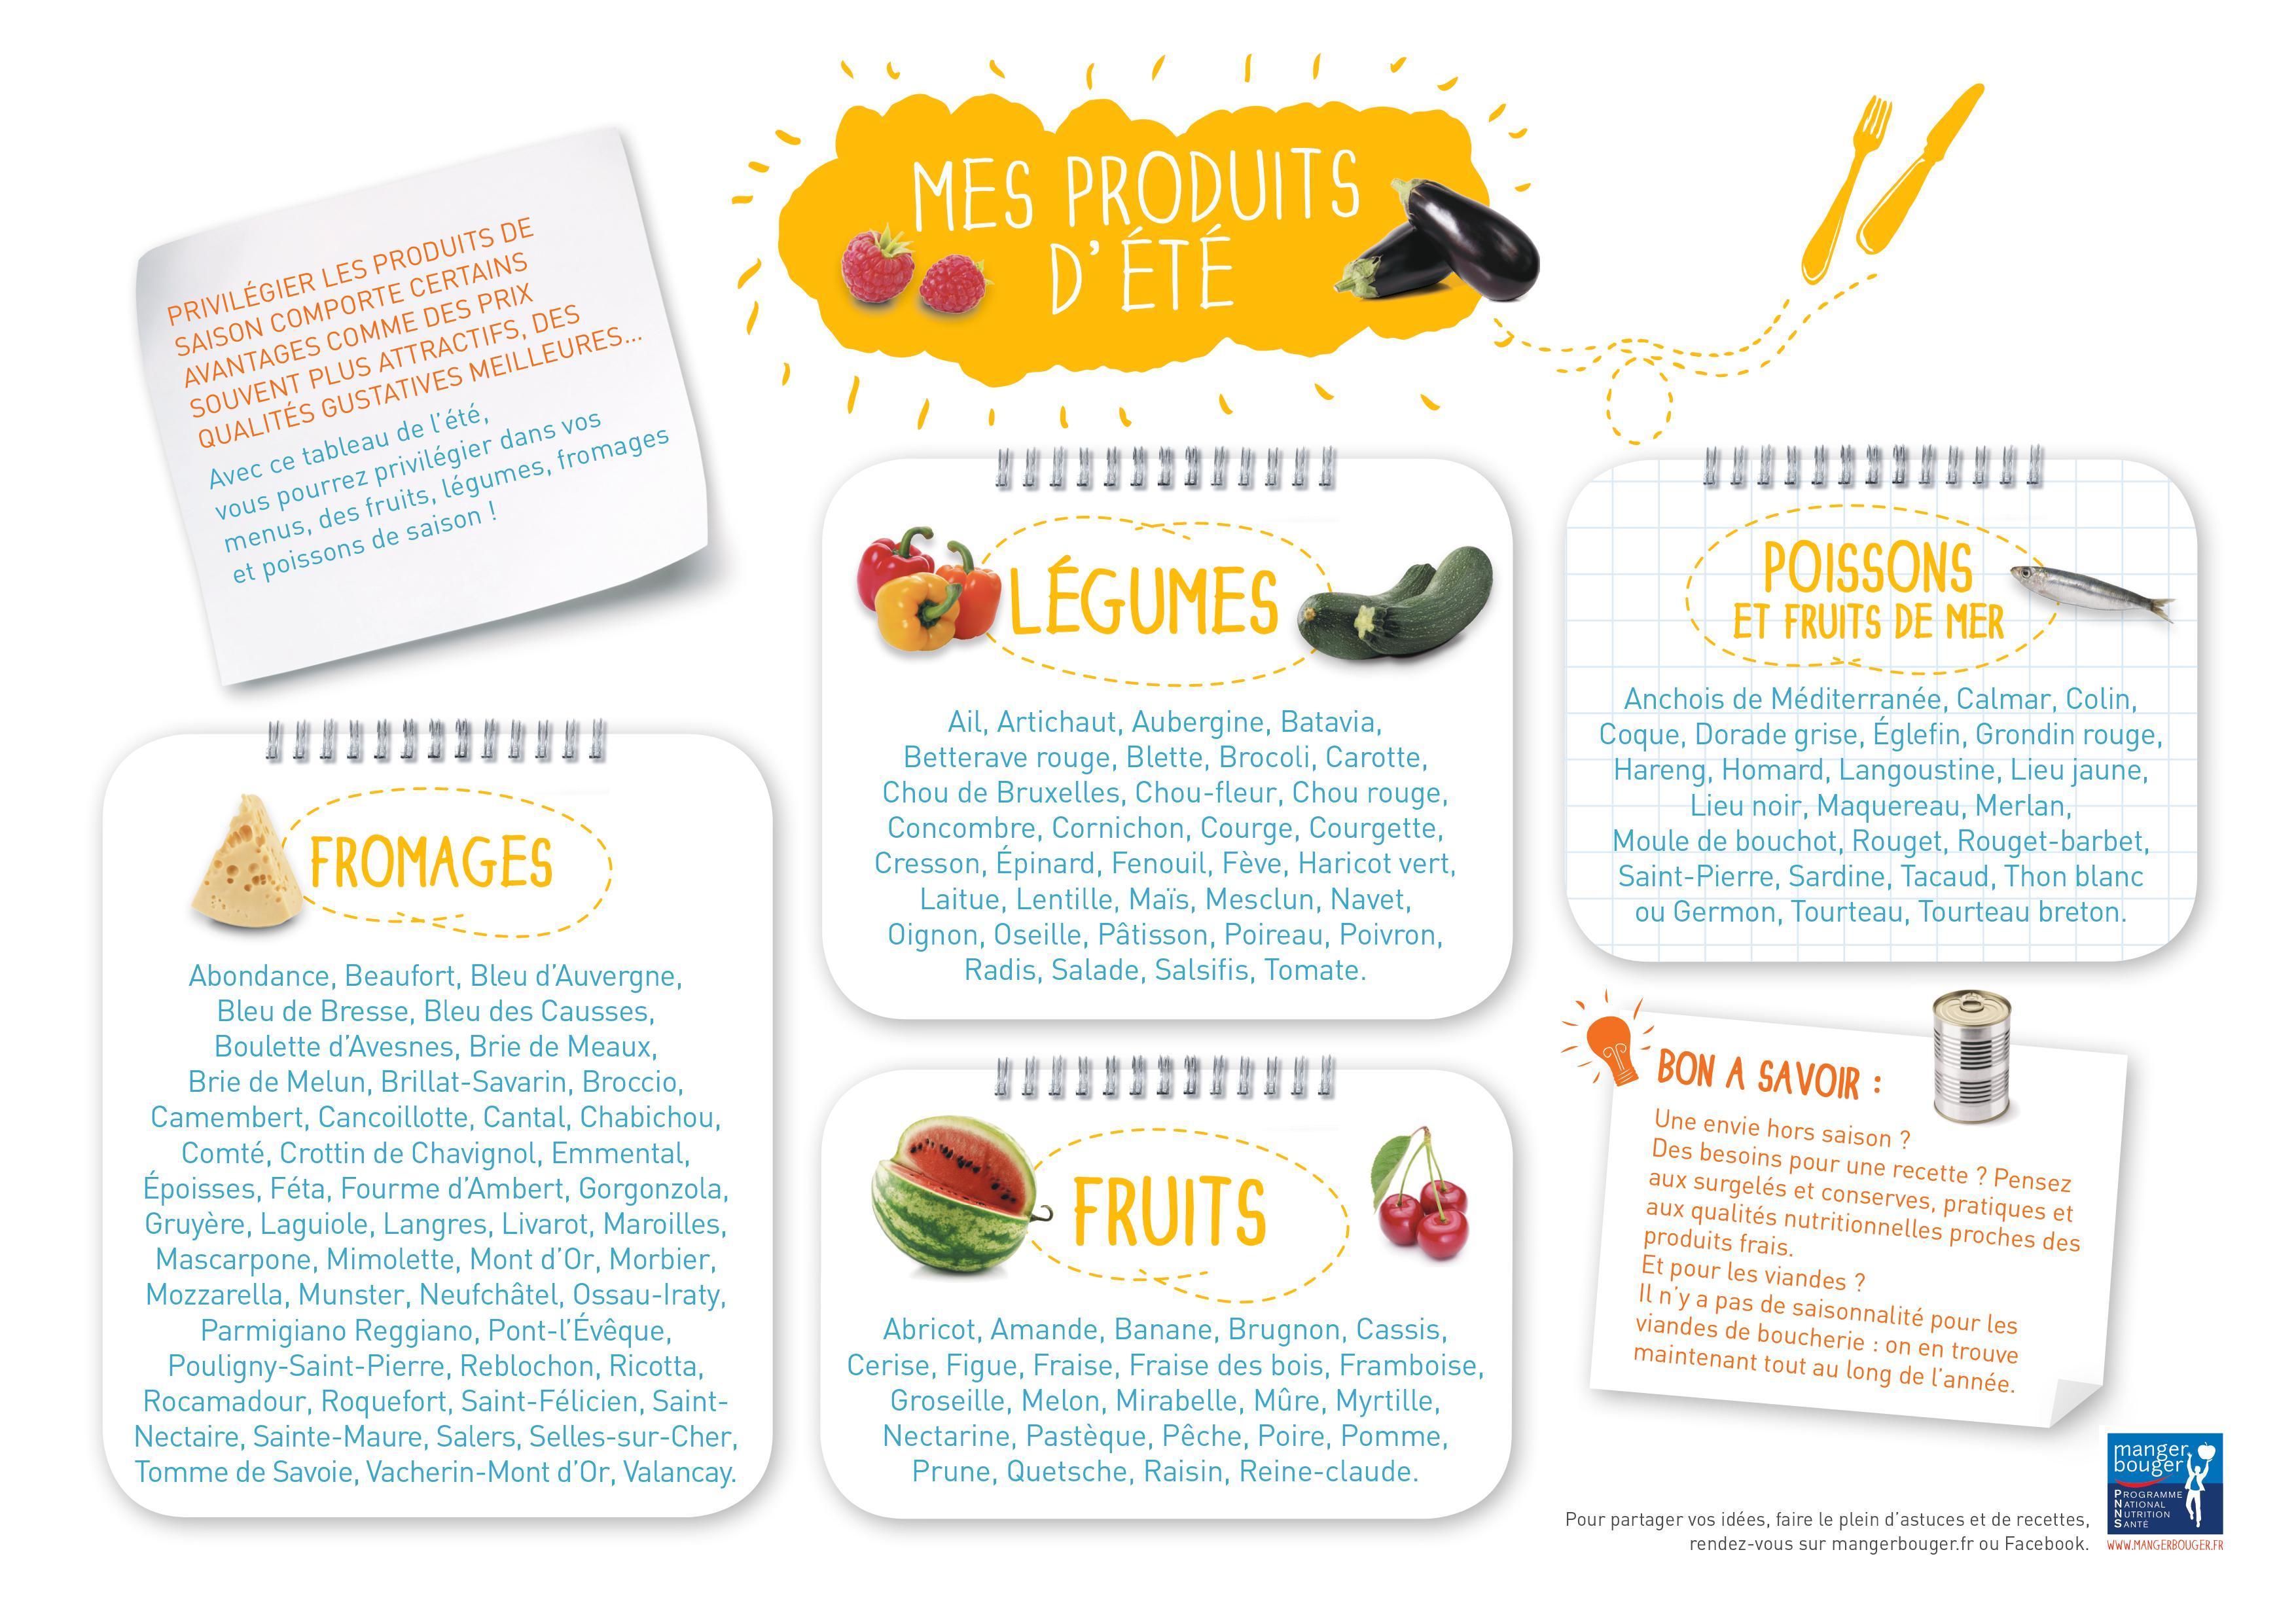 MES PRODUITS
D'ÉTÉ
PRIVILÉGIER LES PRODUITS DE
SAISON COMPORTE CERTAINS
AVANTAGES COMME DES PRIX
SOUVENT PLUS ATTRACTIFS, DES
QUALITÉS GUSTATIVES MEILLEURES...
Avec ce tableau de l'été,
vous pourrez privilégier dans vos
menus, des fruits, légumes, fromages
et poissons de saison !
FROMAGES
Abondance, Beaufort, Bleu d'Auvergne,
Bleu de Bresse, Bleu des Causses,
Boulette d'Avesnes, Brie de Meaux,
Brie de Melun, Brillat-Savarin, Broccio,
Camembert, Cancoillotte, Cantal, Chabichou,
Comté, Crottin de Chavignol, Emmental,
Époisses, Féta, Fourme d'Ambert, Gorgonzola,
Gruyère, Laguiole, Langres, Livarot, Maroilles,
Mascarpone, Mimolette, Mont d'Or, Morbier,
Mozzarella, Munster, Neufchâtel, Ossau-Iraty,
Parmigiano Reggiano, Pont-l'Évêque,
Pouligny-Saint-Pierre, Reblochon, Ricotta,
Rocamadour, Roquefort, Saint-Félicien, Saint-
Nectaire, Sainte-Maure, Salers, Selles-sur-Cher,
Tomme de Savoie, Vacherin-Mont d'Or, Valancay.
LÉGUMES
Ail, Artichaut, Aubergine, Batavia,
Betterave rouge, Blette, Brocoli, Carotte,
Chou de Bruxelles, Chou-fleur, Chou rouge,
Concombre, Cornichon, Courge, Courgette,
Cresson, Épinard, Fenouil, Fève, Haricot vert,
Laitue, Lentille, Maïs, Mesclun, Navet,
Oignon, Oseille, Pâtisson, Poireau, Poivron,
Radis, Salade, Salsifis, Tomate.
FRUITS
Abricot, Amande, Banane, Brugnon, Cassis,
Cerise, Figue, Fraise, Fraise des bois, Framboise,
Groseille, Melon, Mirabelle, Mûre, Myrtille,
Nectarine, Pastèque, Pêche, Poire, Pomme,
Prune, Quetsche, Raisin, Reine-claude.
POISSONS
ET FRUITS DE MER
Anchois de Méditerranée, Calmar, Colin,
Coque, Dorade grise, Églefin, Grondin rouge,
Hareng, Homard, Langoustine, Lieu jaune,
Lieu noir, Maquereau, Merlan,
Moule de bouchot, Rouget, Rouget-barbet,
Saint-Pierre, Sardine, Tacaud, Thon blanc
ou Germon, Tourteau, Tourteau breton.
BON A SAVOIR :
Une envie hors saison ?
Des besoins pour une recette ? Pensez
aux surgelés et conserves, pratiques et
aux qualités nutritionnelles proches des
produits frais.
Et pour les viandes ?
Il n'y a pas de saisonnalité pour les
viandes de boucherie : on en trouve
maintenant tout au long de l'année.
Pour partager vos idées, faire le plein d'astuces et de recettes,
rendez-vous sur mangerbouger.fr ou Facebook.
manger
bouger
PROGRAMME
NATIONAL
NUTRITION
SANTÉ
WWW.MANGERBOUGER.FR